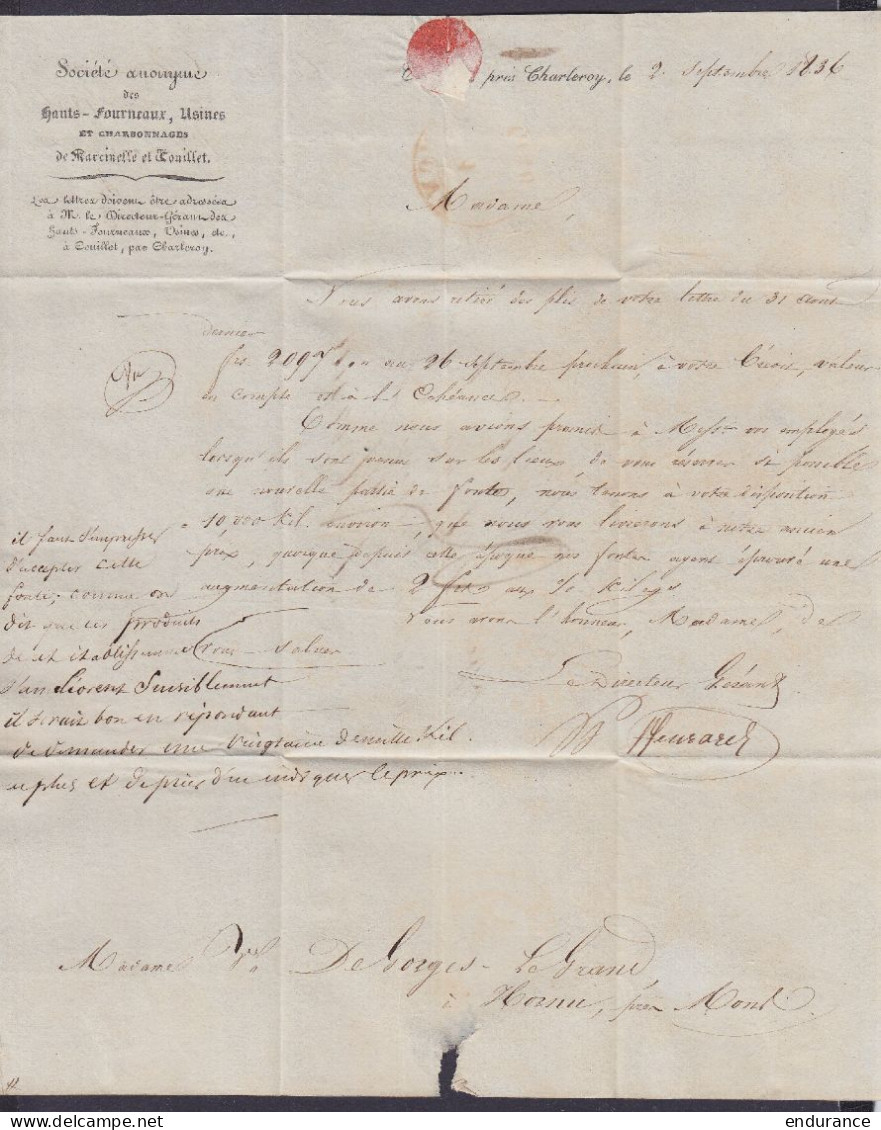 Société anonyme
des
Hauts-Fourneaux, Usines
ET CHARBONNAGES
de Marcinelle et Couillet.
Les lettres doivent être adressées
à M. le Directeur-Gérant des
Hauts-Fourneaux, Usines, etc.,
à Couillet, par Charleroy.
près Charleroy, le 2 Septembre 1836
Madame,
Nous avons retiré des plis de votre lettre du 31 aout
dernier
frs 2097 au 26 Septembre prochain, à votre Crédit, valeur
en compte et à l'Echéance. —
Comme nous avions promis à Messrs vos employés
lorsqu'ils sont venus sur les lieux, de vous réserver si possible
une nouvelle partie de fonte, nous tenons à votre disposition
10,000 Kil. environ, que nous vous livrerons à notre ancien
prix, quoique depuis cette époque nos fontes ayent éprouvé une
augmentation de 2 frs aux % Kilogs
Nous avons l'honneur, Madame, de
vous saluer
Le Directeur Gérant
il faut s'empresser
d'accepter cette
fonte, comme on
dit que les produits
de cet établissement
s'améliorent sensiblement
il serait bon en répondant
de demander une vingtaine de mille Kil.
en plus et de prier d'en indiquer le prix.
Madame Ve DeGorges-LeGrand
à Hornu, près Mons
endurance